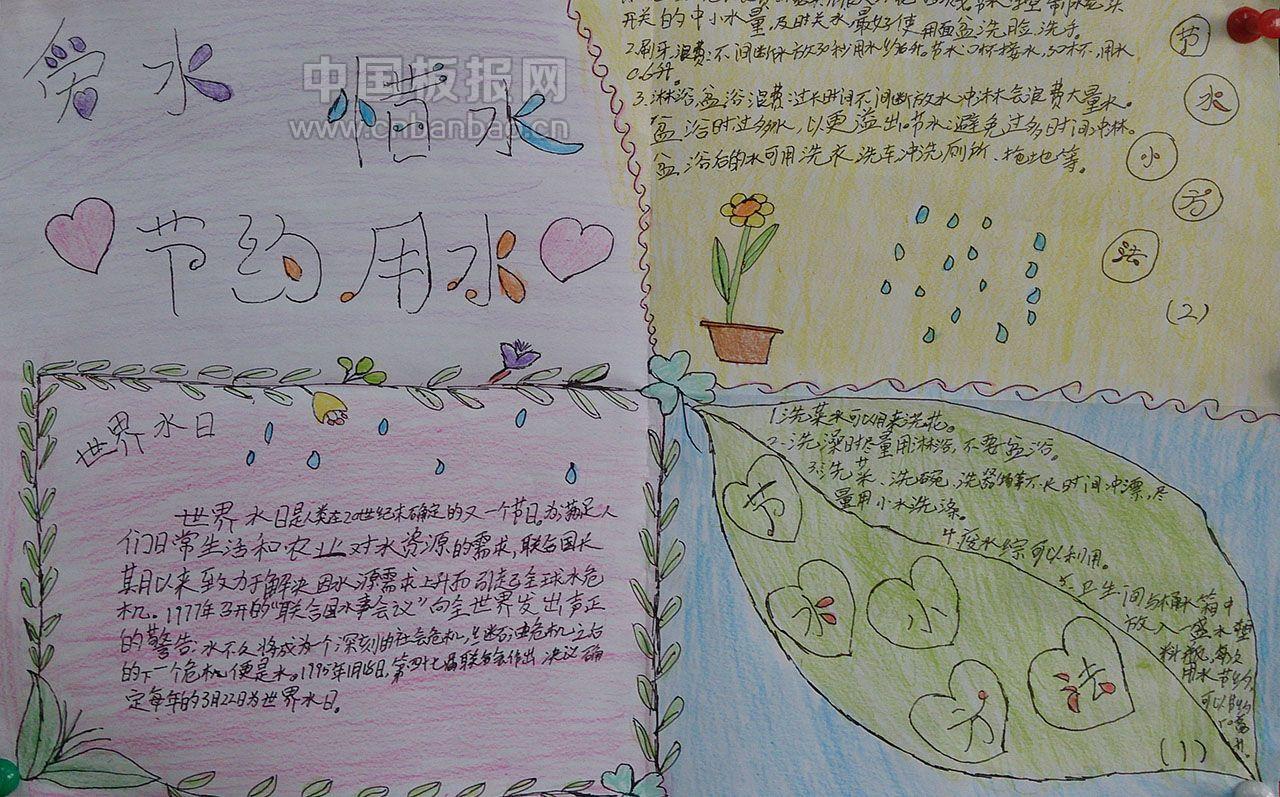 爱水
惜水
节约用水
中国板报网
www.chbanbao.cn
开关的中小水量,及时关水最好使用面盆洗脸洗手。
2.刷牙浪费:不间断
节水:口杯接水,
用水
0.6升。
3.淋浴、盆浴浪费过长时间不间断放水冲淋会浪费大量水。
盆浴时过多水,以更溢出。节水:避免过多时间冲淋。
盆浴后的水可用洗衣洗车冲洗厕所、拖地等。
节
水
小
方
法
(2)
世界水日
世界水日是人类在20世纪末确定的又一个节日。为满足人
们日常生活和农业对水资源的需求,联合国长
期以来致力于解决因水源需求上升而引起全球水危
机。1977年召开的“联合国水事会议”向全世界发出声正
的警告:水不久将成为个深刻的社会危机,
危机之后
的下一个危机便是水。
作出决议确
定每年的3月22日为世界水日。
1.洗菜水可以用来浇花。
2.洗澡时尽量用淋浴,不要盆浴。
3.洗菜、洗碗、洗
不长时间冲漂,尽
量用小水洗涤。
4.废水综可以利用。
5.卫生间
水箱中
放入一盛水塑
料瓶,每次
用水节约
可以
节
水
小
方
法
(1)